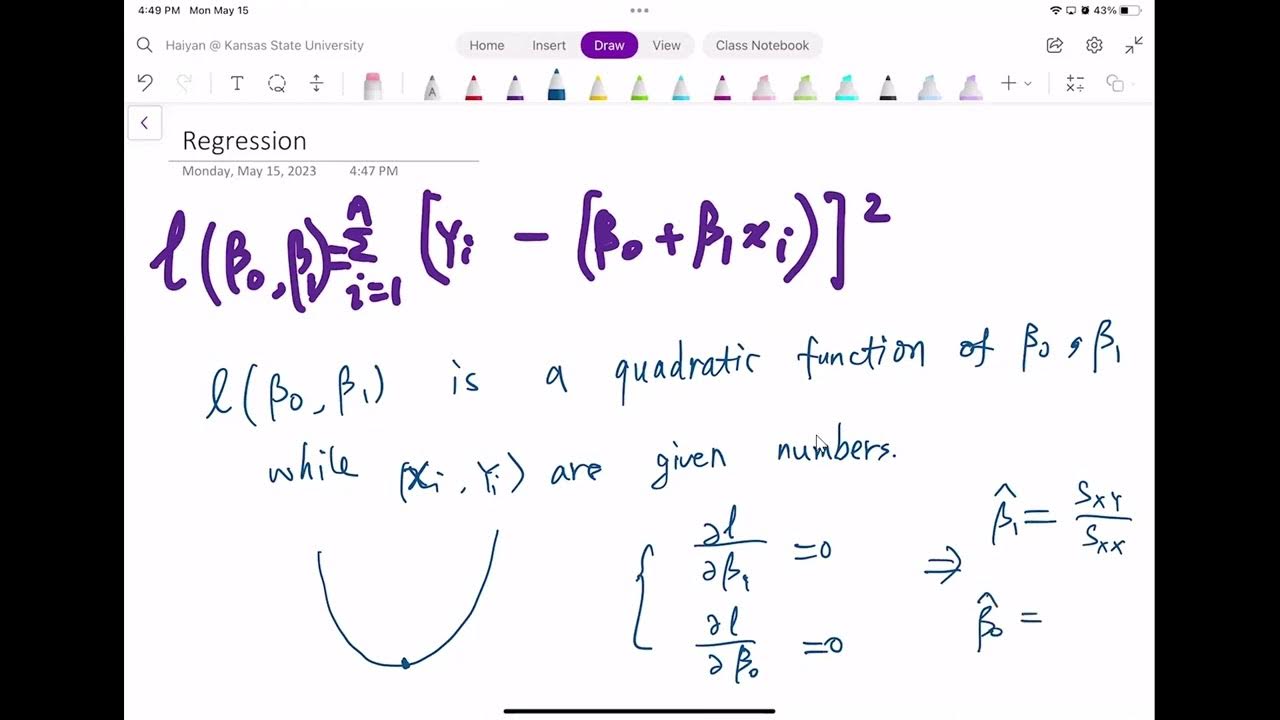 4:49 PM Mon May 15
43%
Haiyan @ Kansas State University
Home Insert Draw View Class Notebook
T
A
Regression
Monday, May 15, 2023 4:47 PM
l(β₀, β₁) = Σ_{i=1}^{n} [Yi - (β₀ + β₁xi)]²
l(β₀, β₁) is a quadratic function of β₀, β₁
while (xi, Yi) are given numbers.
∂l/∂β₁ = 0
∂l/∂β₀ = 0
⇒ β̂₁ = S_XY/S_XX
β̂₀ =